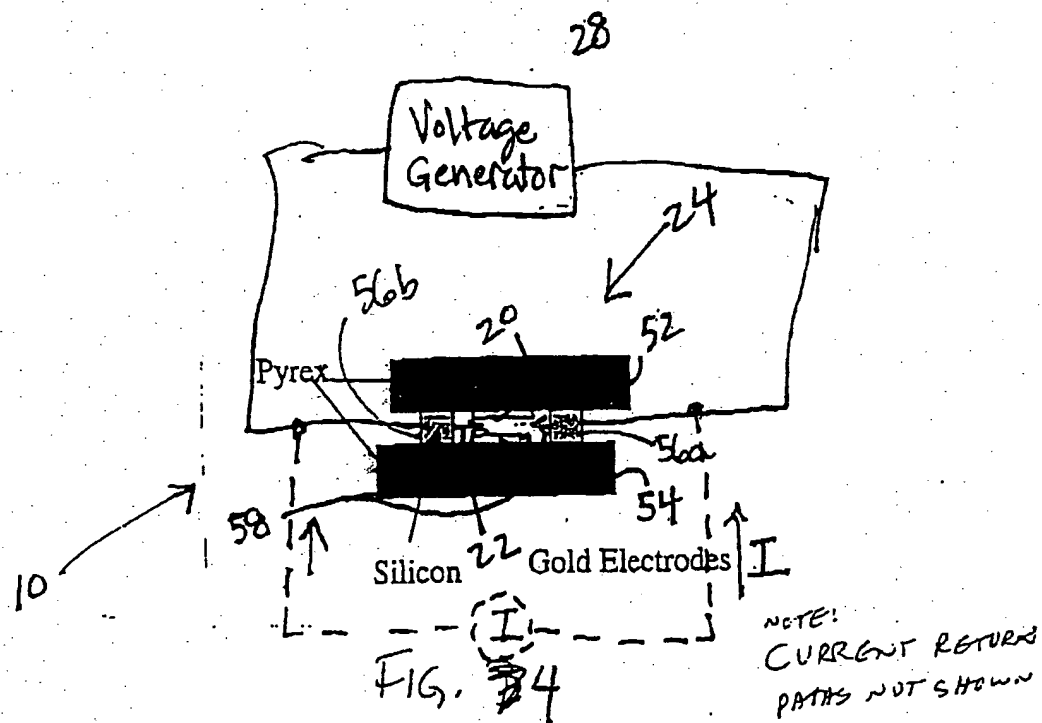 28
Voltage
Generator
24
56b
20
52
Pyrex
56a
54
58
22
Silicon
Gold Electrodes
I
10
I
FIG. 4
NOTE:
CURRENT RETURN
PATHS NOT SHOWN